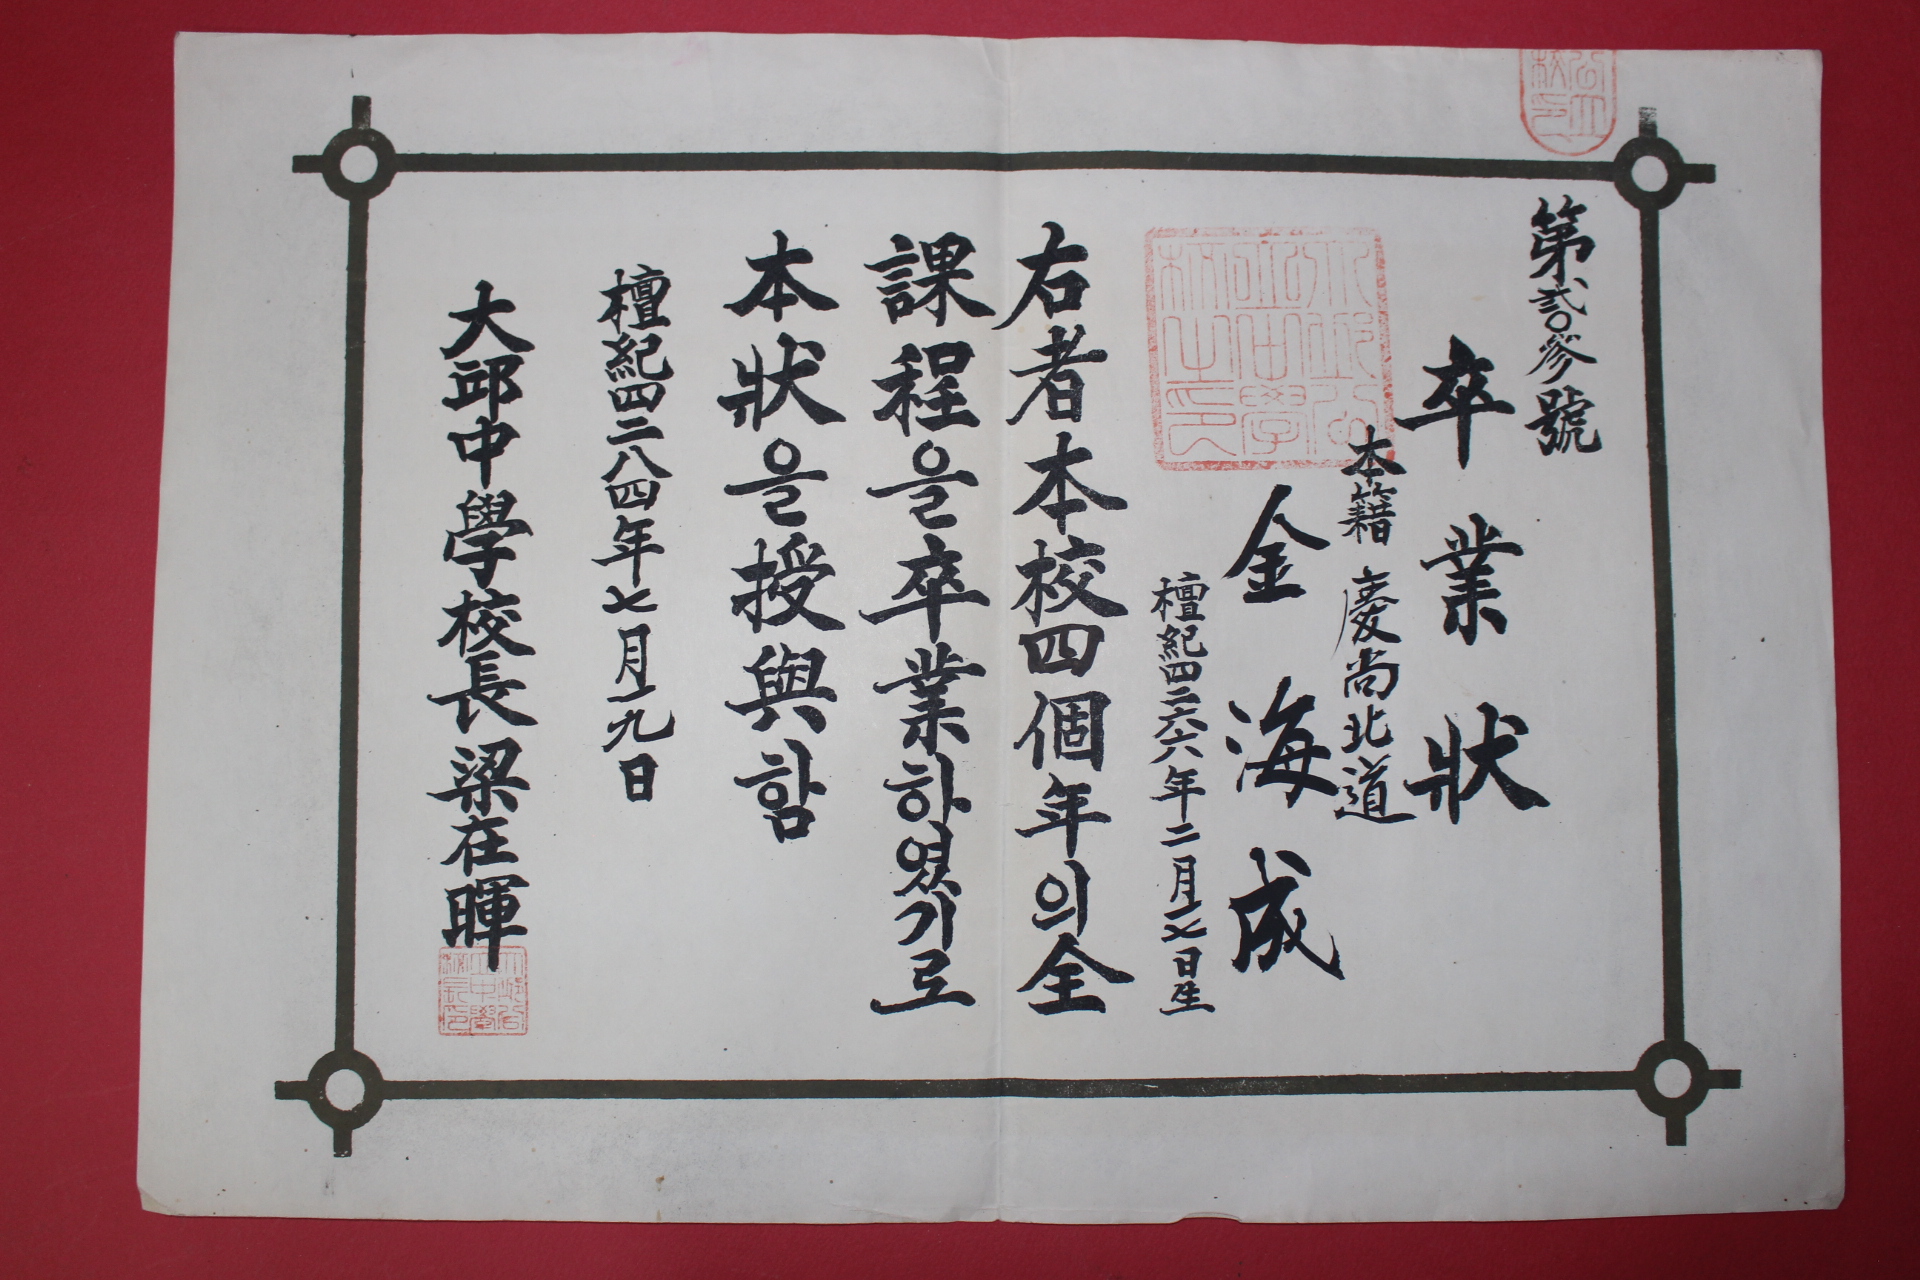 第貳〇參號
卒業狀
本籍 慶尙北道
金海成
檀紀四二六六年二月一七日生
右者本校四個年의全
課程을卒業하였기로
本狀을授與함
檀紀四二八四年七月一九日
大邱中學校長梁在暉